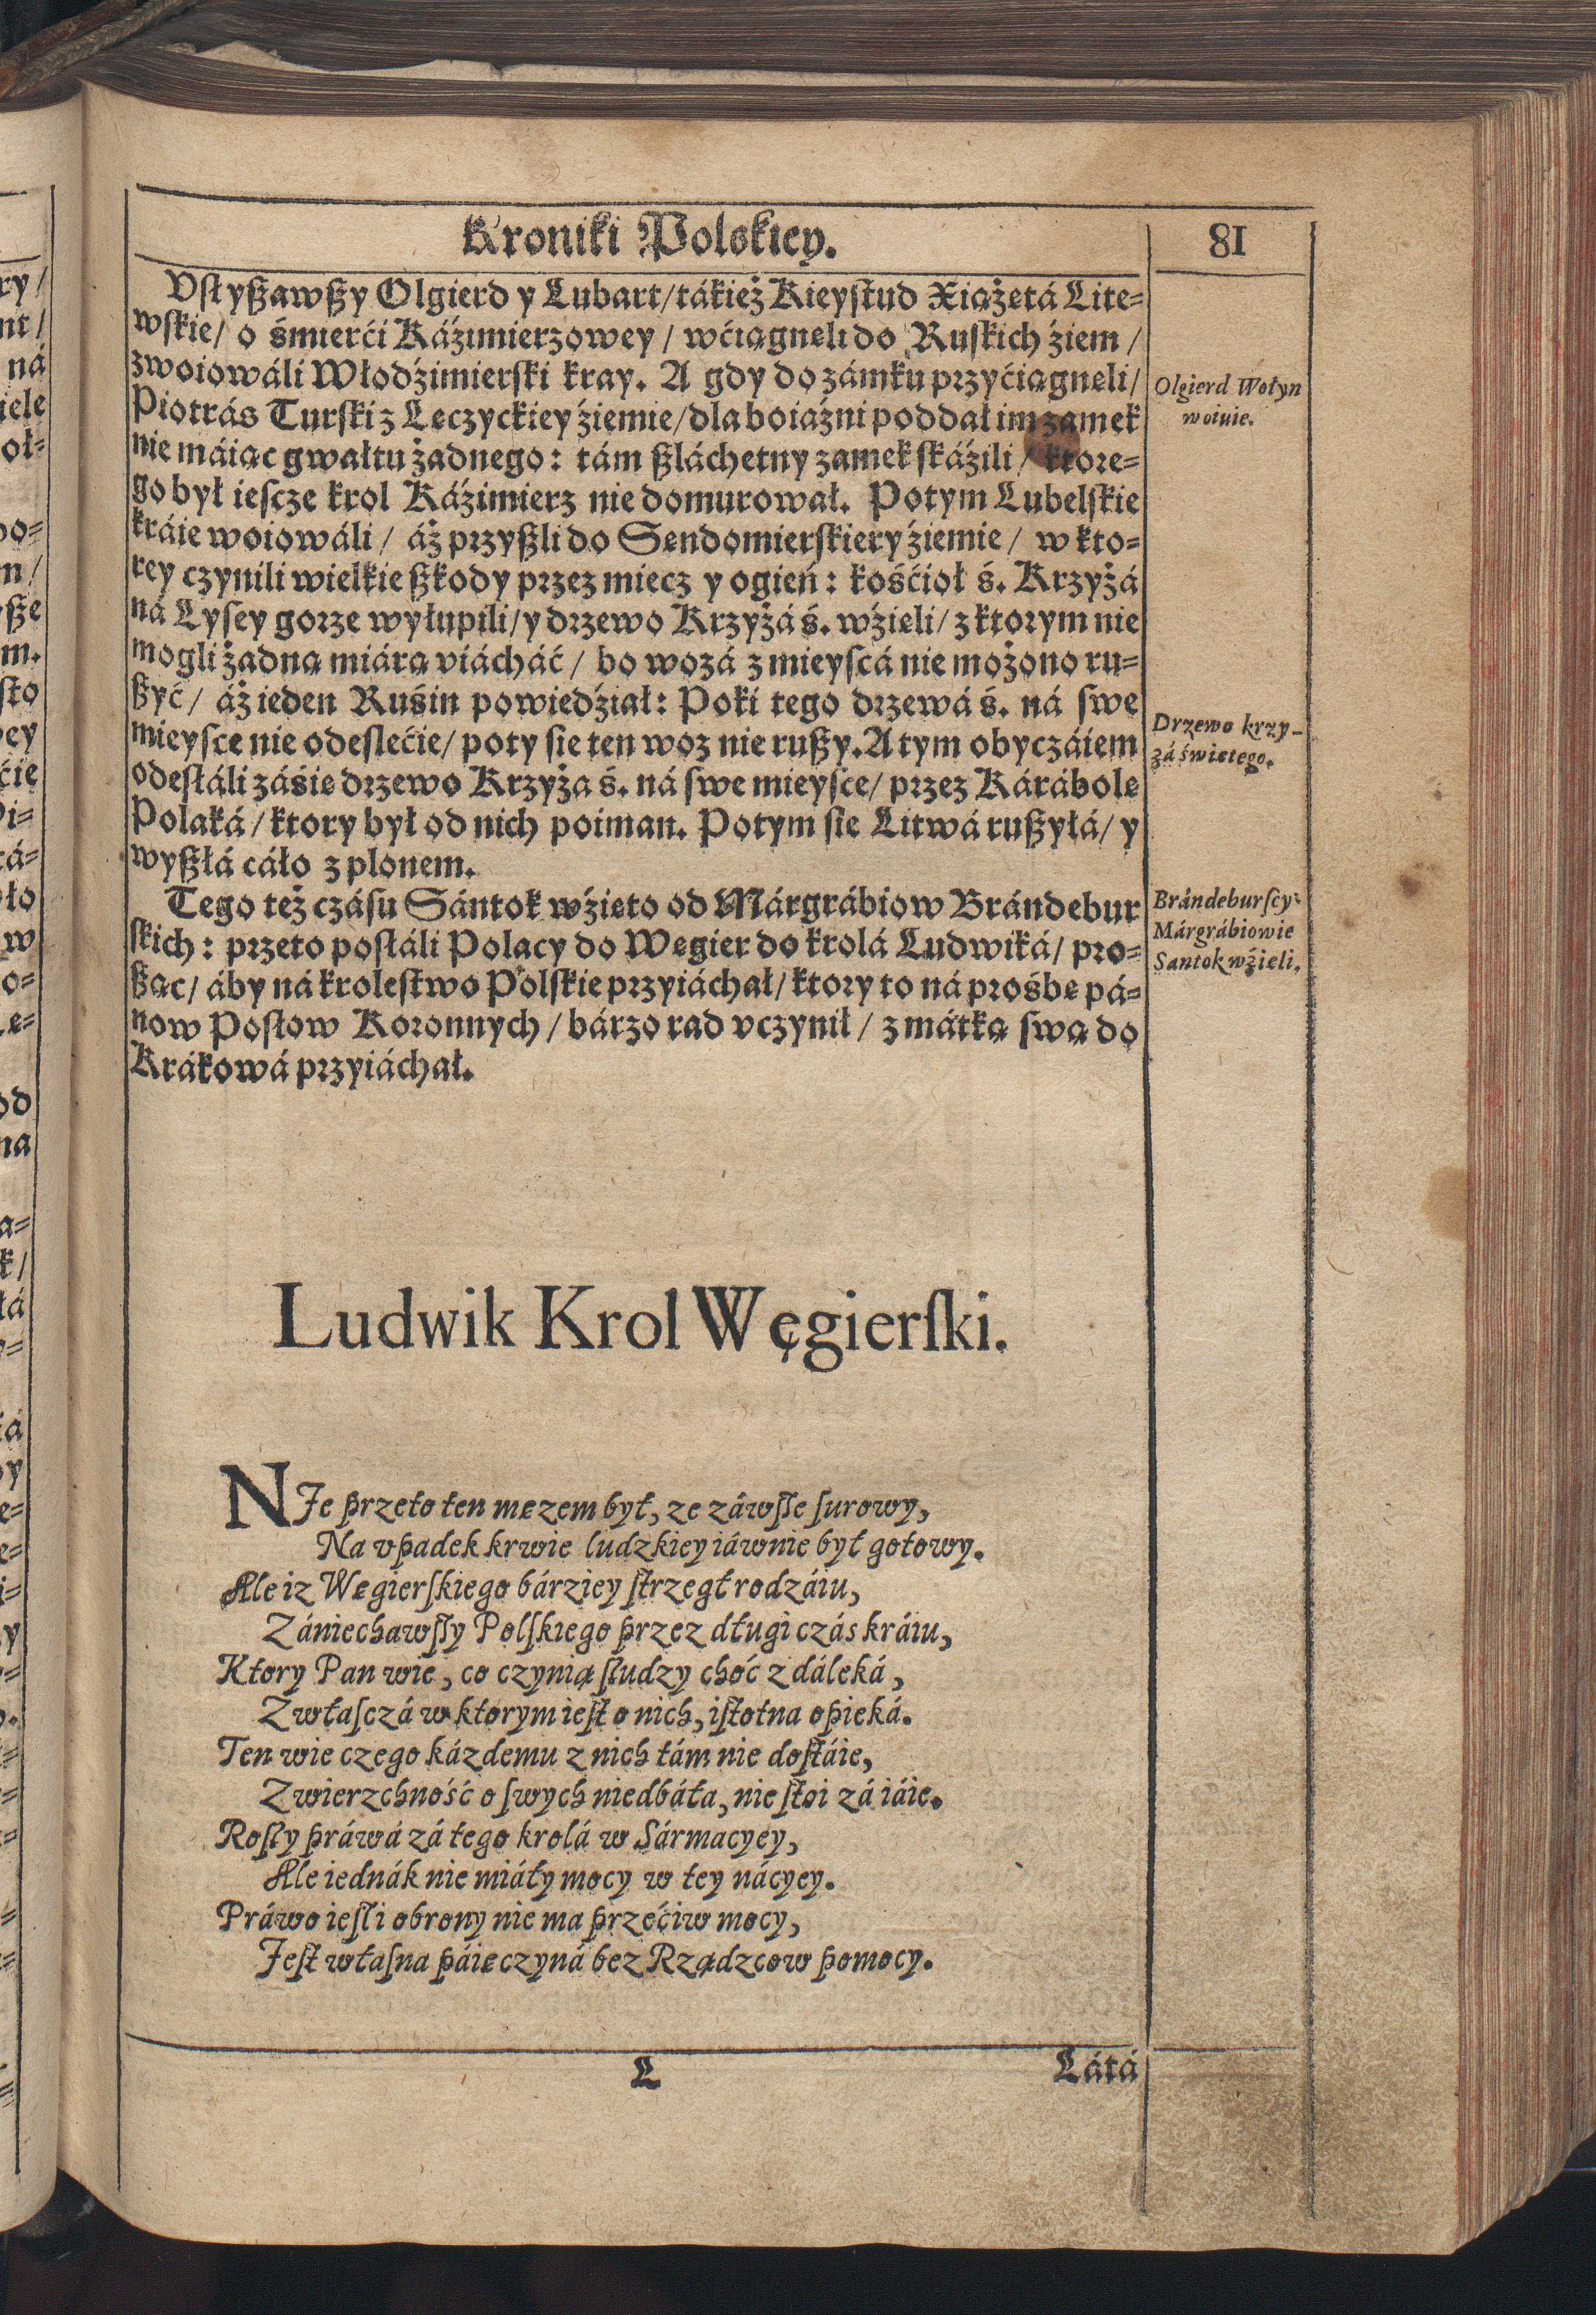 Kroniki Polskiey.
81
Vsłyßawßy Olgierd y Lubart/tákież Kieystud Xiążetá Lite=
wskie/ o śmierći Káźimierzowey / wćiągneli do Ruskich źiem /
zwoiowáli Włodźimierski kray. A gdy do zámku przyćiągneli/
Piotrás Turski z Łęczyckiey źiemie/dla boiáźni poddał im zamek
nie máiąc gwałtu żadnego: tám ßláchetny zamek skáźili / ktore=
go był iescze krol Káźimierz nie domurował. Potym Lubelskie
kráie woiowáli / áż przyßli do Sendomierskiery źiemie / w kto=
rey czynili wielkie ßkody przez miecz y ogień: kośćioł ś. Krzyżá
ná Lysey gorze wyłupili/y drzewo Krzyżá ś. wźięli/ z ktorym nie
mogli żadną miárą viácháć / bo wozá z mieyscá nie możono ru=
ßyć/ áż ieden Ruśin powiedźiał: Poki tego drzewá ś. ná swe
mieysce nie odeslećie/ poty sie ten woz nie rußy. A tym obyczáiem
odesłáli záśię drzewo Krzyża ś. ná swe mieysce/ przez Kárábolę
Polaká/ ktory był od nich poiman. Potym sie Litwá rußyłá/ y
wyßłá cáło z plonem.
Olgierd Wołyn
woiuie.
Drzewo krzy-
żá świętego.
Tego też czásu Sántok wźięto od Márgrábiow Brándebur
skich: przeto posłáli Polacy do Węgier do krolá Ludwiká/ pro=
ßąc/ áby ná krolestwo Polskie przyiáchał/ ktory to ná prośbę pá=
now Posłow Koronnych / bárzo rad vczynił / z mátką swą do
Krákowá przyiáchał.
Brándeburscy
Márgrábiowie
Santok wźięli.
Ludwik Krol Węgierſki.
NIe przeto ten mężem był, że záwſſe ſurowy,
Na vpadek krwie ludzkiey iáwnie był gotowy.
Ale iż Węgierſkiego bárziey ſtrzegł rodzáiu,
Zániechawſſy Polſkiego przez długi czás kráiu,
Ktory Pan wie, co czynią ſłudzy choć z dáleká,
Zwłaſczá w ktorym ieſt o nich, iſtotna opieká.
Ten wie czego káżdemu z nich tám nie doſtáie,
Zwierzchność o ſwych niedbáła, nie ſtoi zá iáie.
Roſły práwá zá tego krolá w Sármacyey,
Ale iednák nie miáły mocy w tey nácyey.
Práwo ieſli obrony nie ma przećiw mocy,
Ieſt właſna páięczyná bez Rządzcow pomocy.
L
Látá